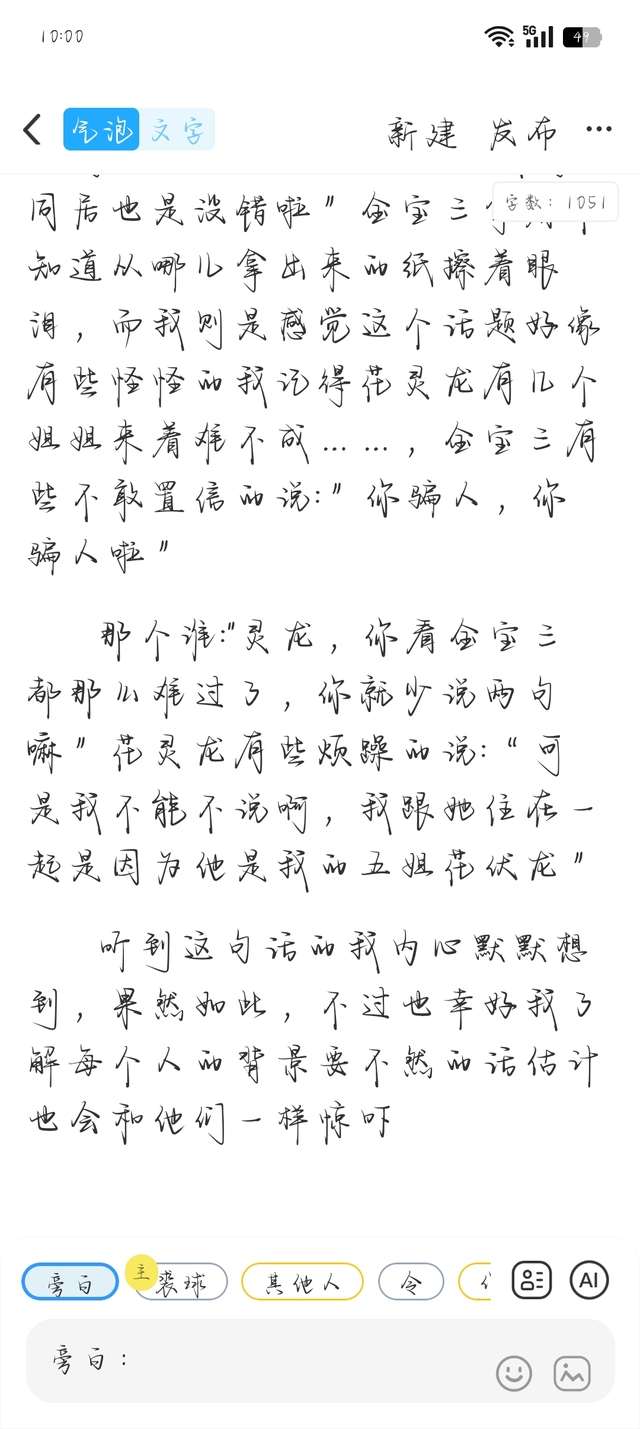 10:00
5G
49
气泡 文字
新建 发布
字数：1051
同居也是没错啦"金宝三
知道从哪儿拿出来的纸擦着眼
泪，而我则是感觉这个话题好像
有些怪怪的我记得花灵龙有几个
姐姐来着难不成……，金宝三有
些不敢置信的说:"你骗人，你
骗人啦"
那个谁:"灵龙，你看金宝三
都那么难过了，你就少说两句
嘛"花灵龙有些烦躁的说:“可
是我不能不说啊，我跟她住在一
起是因为他是我的五姐花伏龙"
听到这句话的我内心默默想
到，果然如此，不过也幸好我了
解每个人的背景要不然的话估计
也会和他们一样惊吓
旁白 主 裘球 其他人 令
AI
旁白：